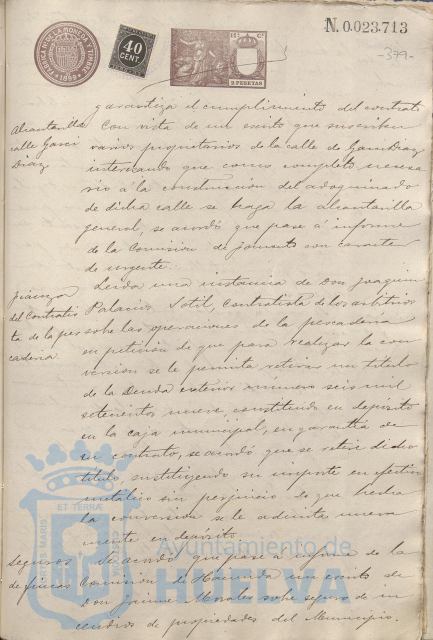 N. 0.023.713
-379-
FABRICA N. DE LA MONEDA Y TIMBRE
1899
40
CENT.
2 PESETAS
garantiza el cumplimiento del contrato
Alcantarilla
calle Garci
Diaz
Con vista de un escrito que suscriben
varios propietarios de la calle de
interesando que como completo necesa
rio á la construccion del adoquinado
de dicha calle se haga la alcantarilla
general, se acordó que pase á informe
de la Comision de fomento con caracter
de urgente.
fianza
del Contratis
ta de la pes
caderia
Leida una instancia de Don Joaquin
Palacios Sotil, Contratista de los arbitrios
sobre las operaciones de la pescaderia
en peticion de que para realizar la con
version se le permita retirar un titulo
de la Deuda exterior numero seis mil
setecientos nueve, constituido en depósito
en la caja municipal, en garantia de
su contrato, se acordó que se retire dicho
titulo sustituyendo su importe en efectivo
metálico sin perjuicio de que hecha
la conversion se le admita nueva
mente en depósito.
Seguros
de fincas
Se acordó que pase á informe de la
Comision de Hacienda un escrito de
Don Jaime Morales sobre seguro de in
cendios de propiedades del Municipio.
ET TERRÆ
Ayuntamiento de
HUELVA